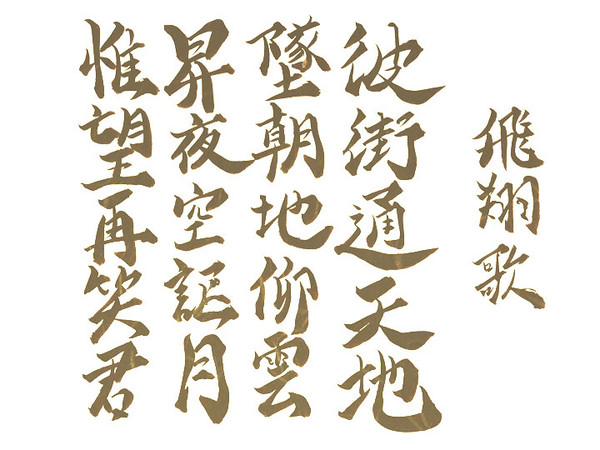 飛翔歌
彼街通天地
墜朝地仰雲
昇夜空謳月
惟望再笑君